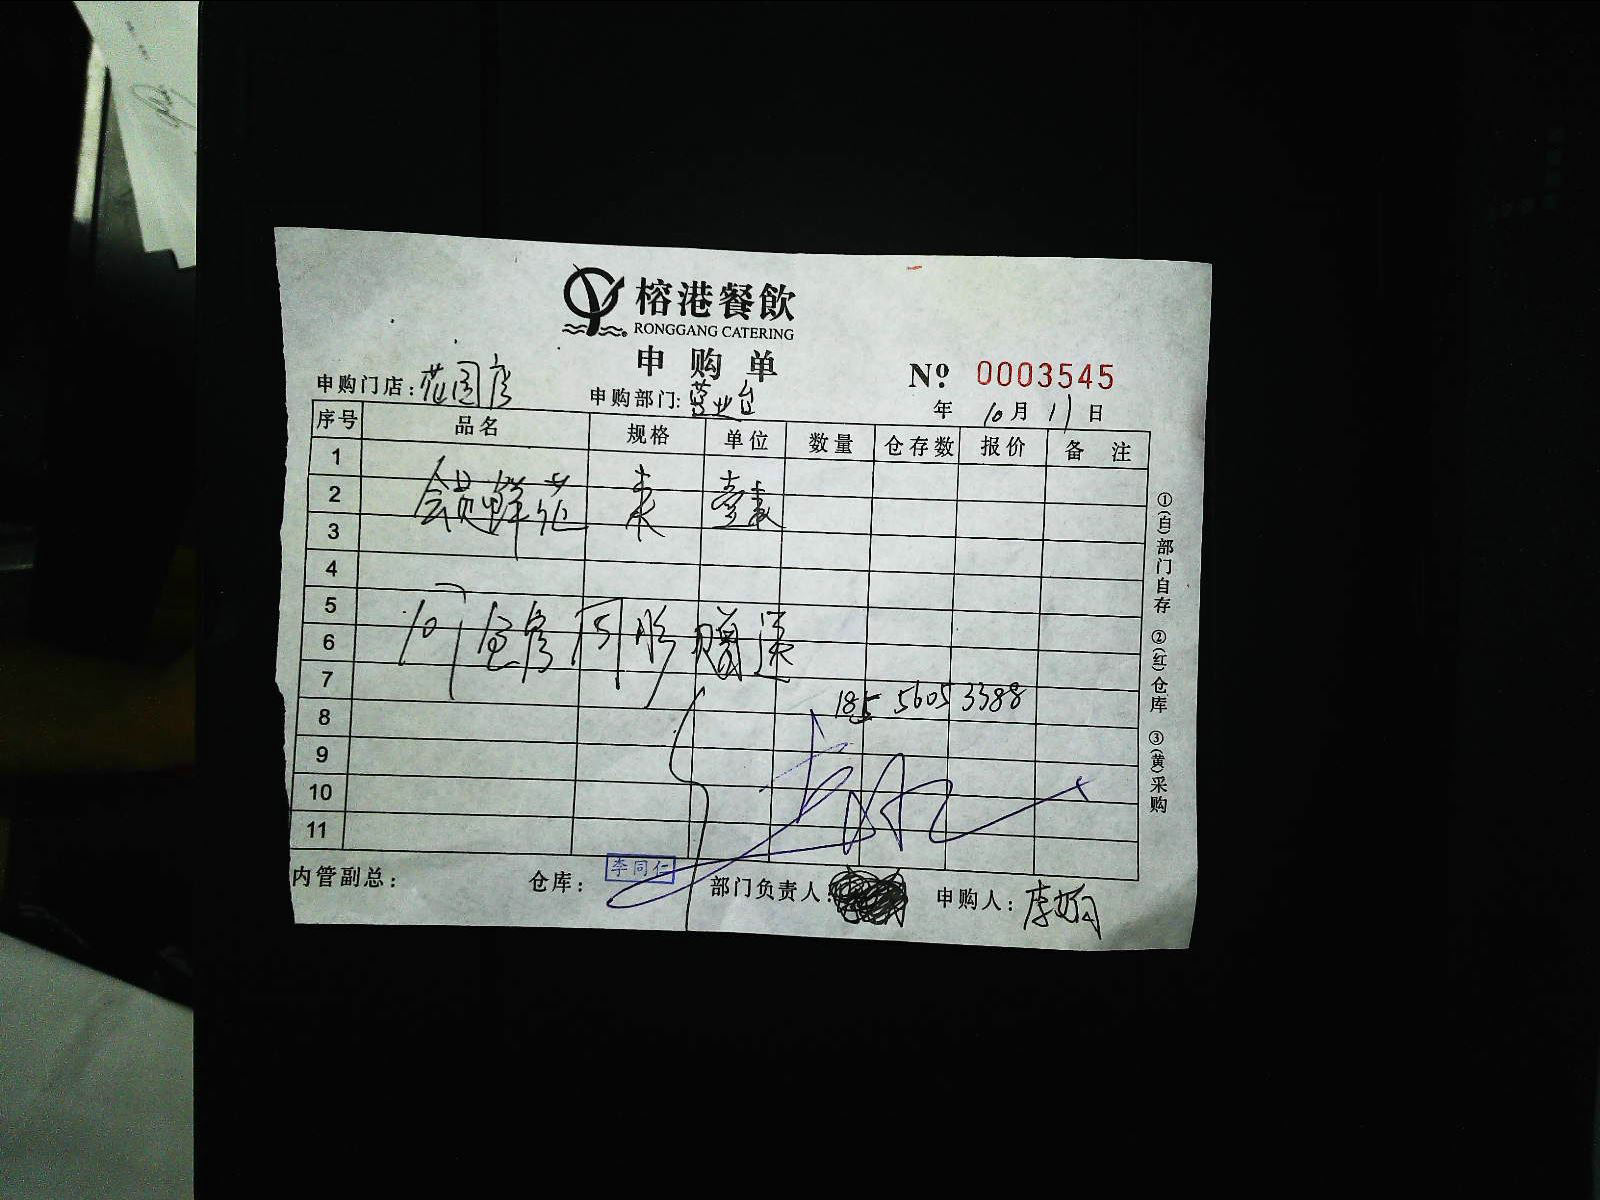 榕港餐飲
RONGGANG CATERING
申购单
Nº 0003545
申购门店：花园店 申购部门：营业台 年 10月 11日
序号 品名 规格 单位 数量 仓存数 报价 备注
1
2 会员鲜花 束 壹束
3
4
5
6 赠送
7 185 5605 3388
8
9
10
11
内管副总： 仓库：李同仁 部门负责人： 申购人：李
①(白)部门自存 ②(红)仓库 ③(黄)采购